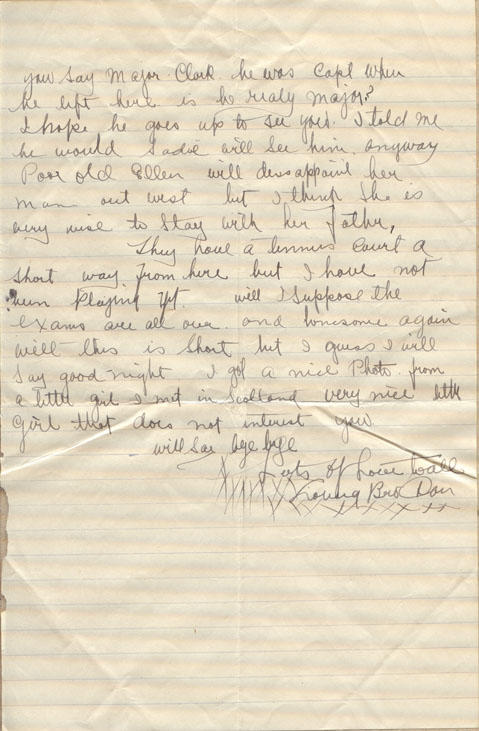 you say Major Clark he was Capt when
he left here is he realy Major?
I hope he goes up to see you. I told me
he would Sadie will see him anyway
Poor old Ellen will dissappoint her
man out west but I think she is
very wise to stay with her Father,
They have a tennis court a
short way from here but I have not
been Playing yet. will I suppose the
exams are all over and lonesome again
will this is short but I guess I will
say good night I got a nice Photo from
a little girl I met in Scotland very nice little
girl that does not interest you
will say bye bye
Lots of Love to all
Young Bro Dan